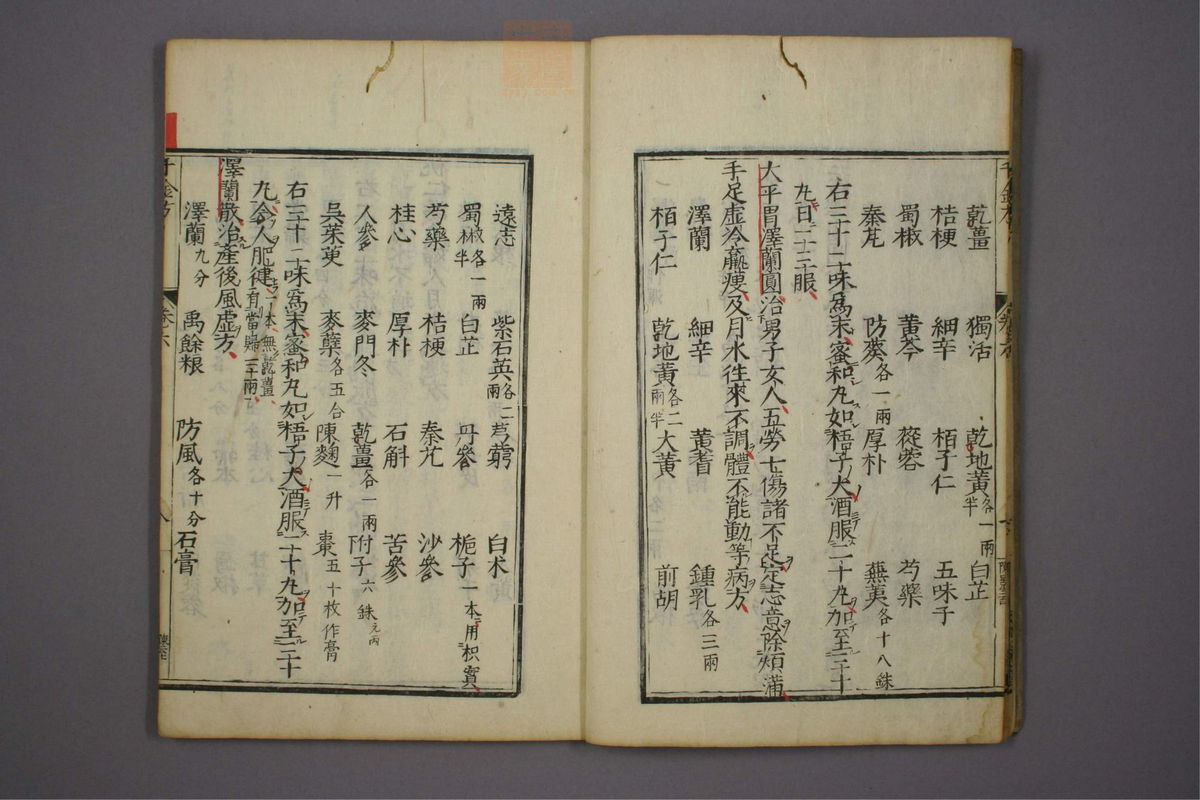 乾薑 獨活 乾地黃各一兩半 白芷
桔梗 細辛 栢子仁 五味子
蜀椒 黃芩 蓯蓉 芍藥
秦艽 防葵各一兩 厚朴 蕪荑各十八銖
右三十二味爲末蜜和丸如梧子大酒服二十丸加至三十
丸日二三服
大平胃澤蘭圓治男子女人五勞七傷諸不足定志意除煩滿
手足虛冷羸瘦及月水往來不調體不能動等病方
澤蘭 細辛 黃耆 鍾乳各三兩
栢子仁 乾地黃各二兩半 大黃 前胡
遠志 紫石英各二兩 芎藭 白朮
蜀椒各一兩半 白芷 丹參 梔子一本用枳實
芍藥 桔梗 秦艽 沙參
桂心 厚朴 石斛 苦參
人參 麥門冬 乾薑各一兩 附子六銖
吳茱萸 麥蘗各五合 陳麴一升 棗五十枚作膏
右三十二味爲末蜜和丸如梧子大酒服二十丸加至三十
丸令人肥健一本無乾薑有當歸三兩
澤蘭散治產後風虛方
澤蘭九分 禹餘粮 防風各十分 石膏